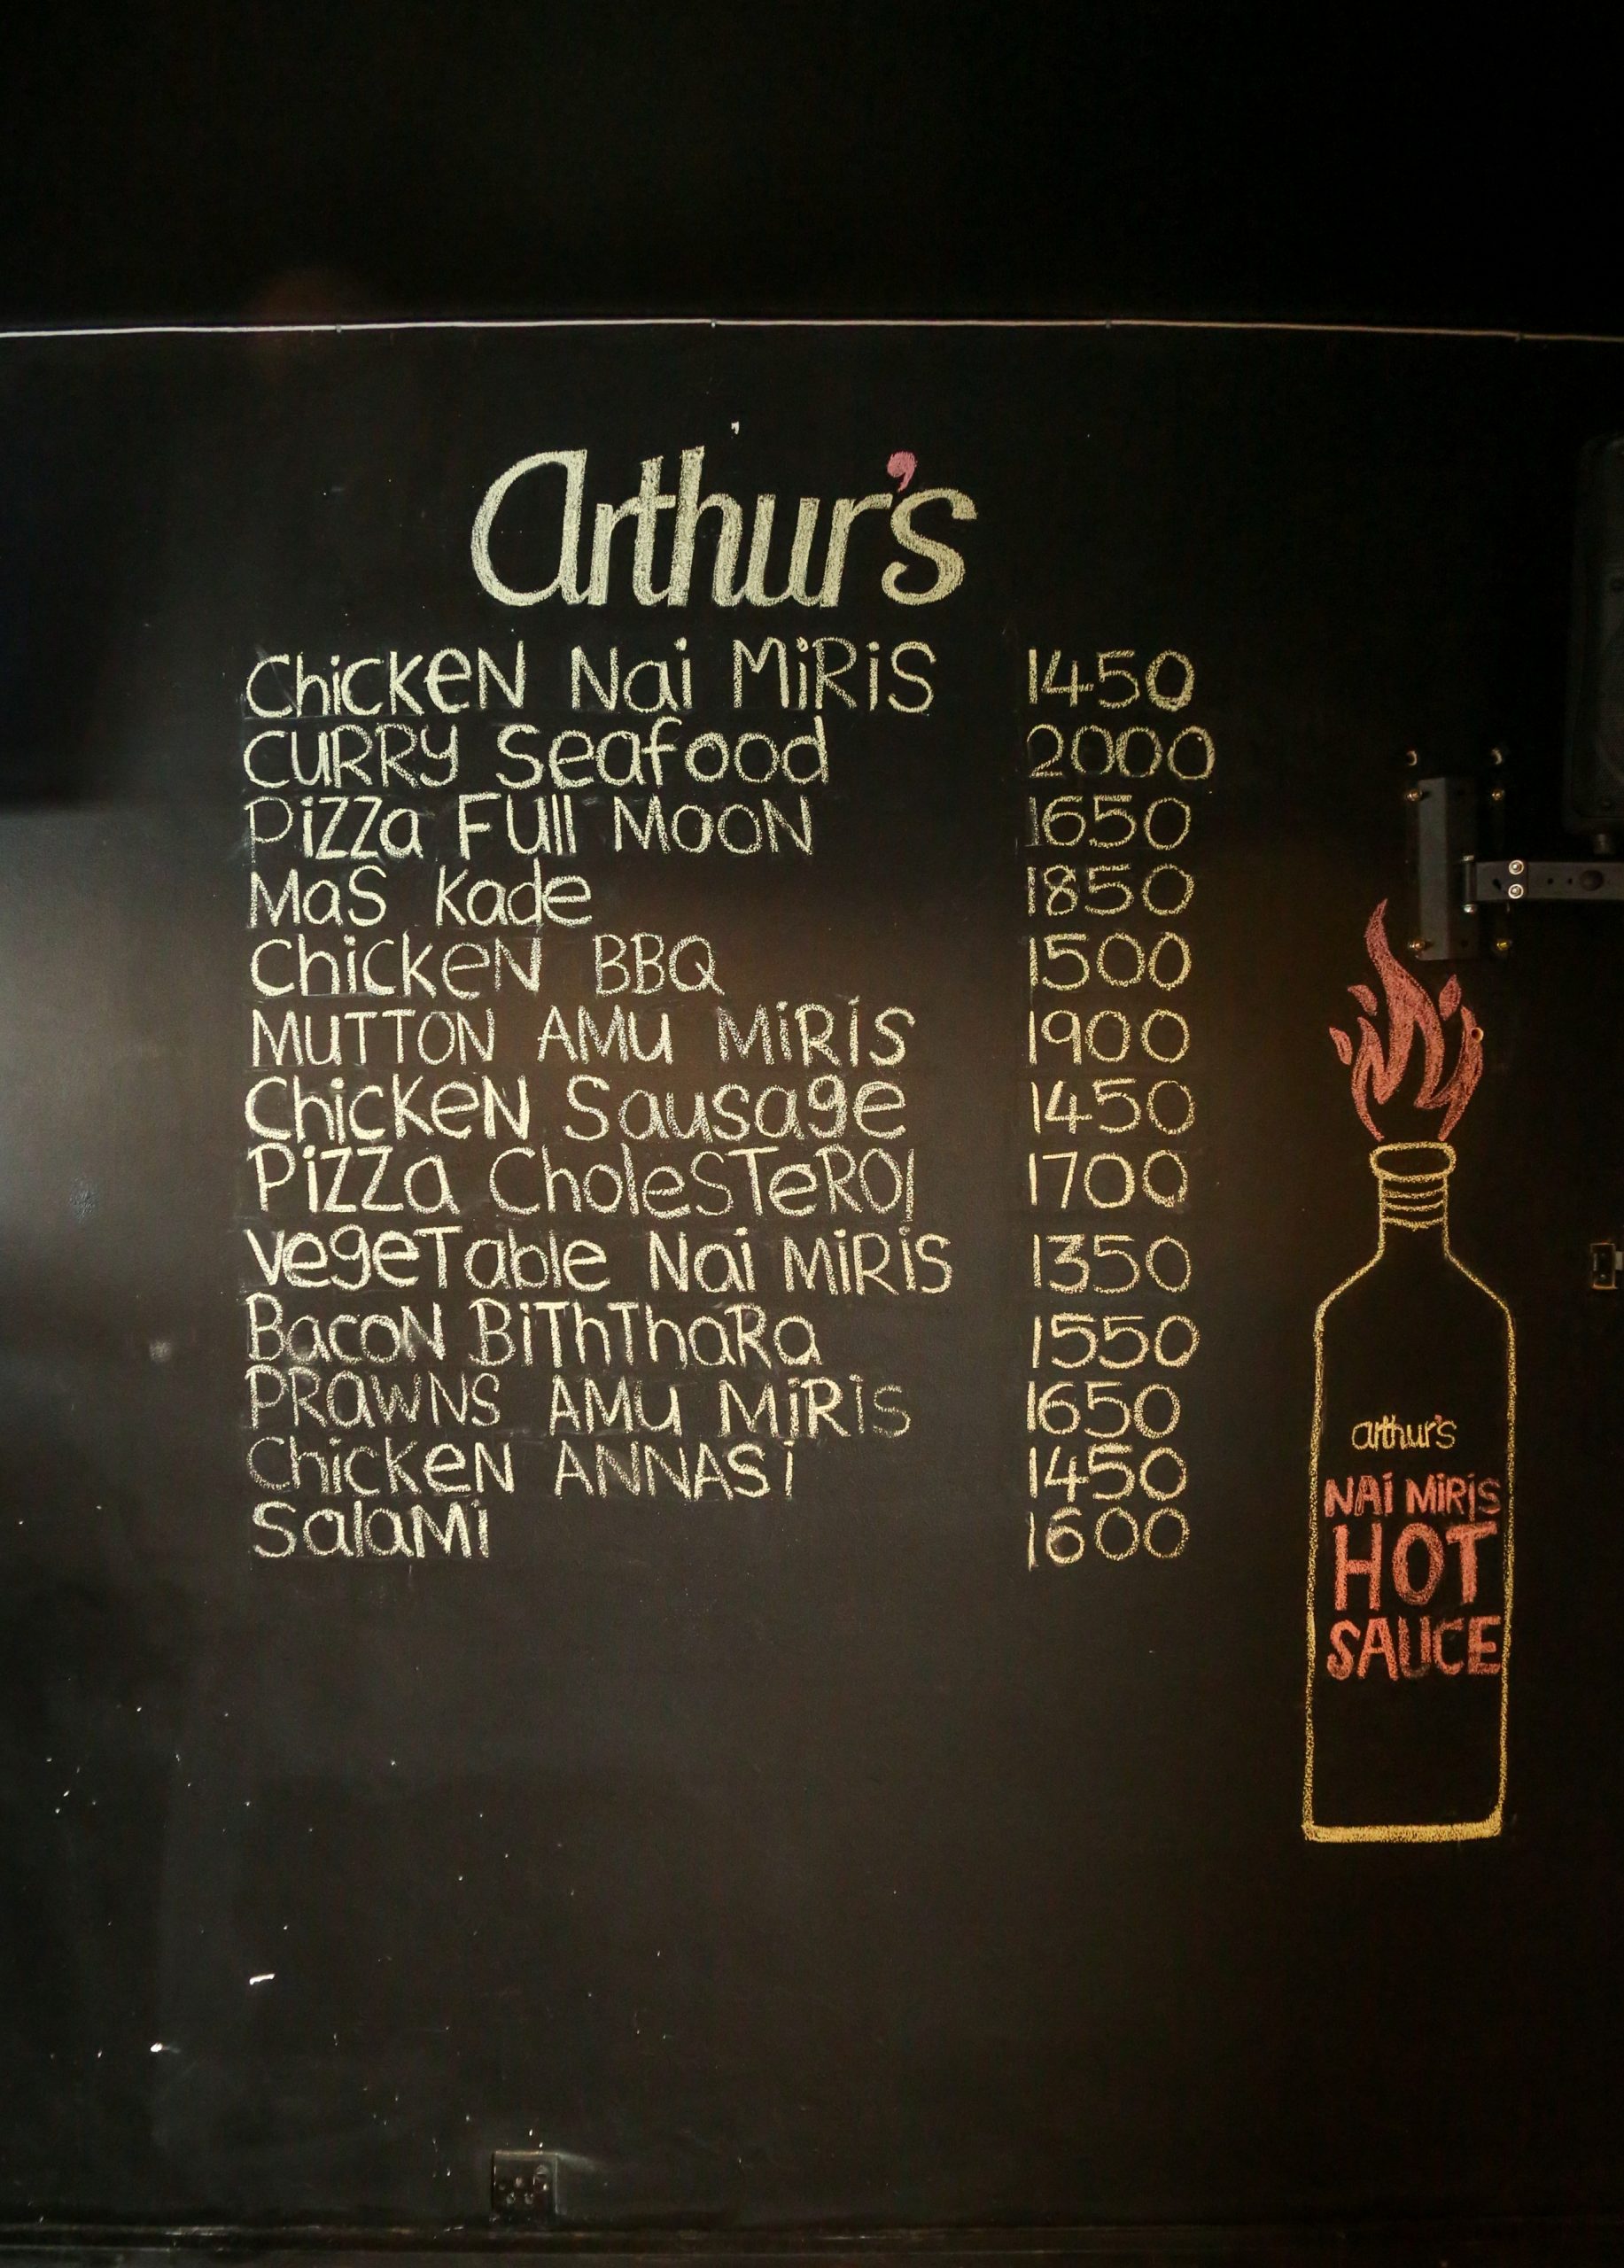 arthur's
Chicken Nai Miris 1450
Curry Seafood 2000
Pizza Full Moon 1650
Mas Kade 1850
Chicken BBQ 1500
MUTTON AMU MIRIS 1900
Chicken Sausage 1450
Pizza Cholesterol 1700
Vegetable Nai Miris 1350
Bacon Biththara 1550
PRAWNS AMU MIRIS 1650
Chicken ANNASi 1450
Salami 1600
arthur's
NAI MIRIS
HOT
SAUCE